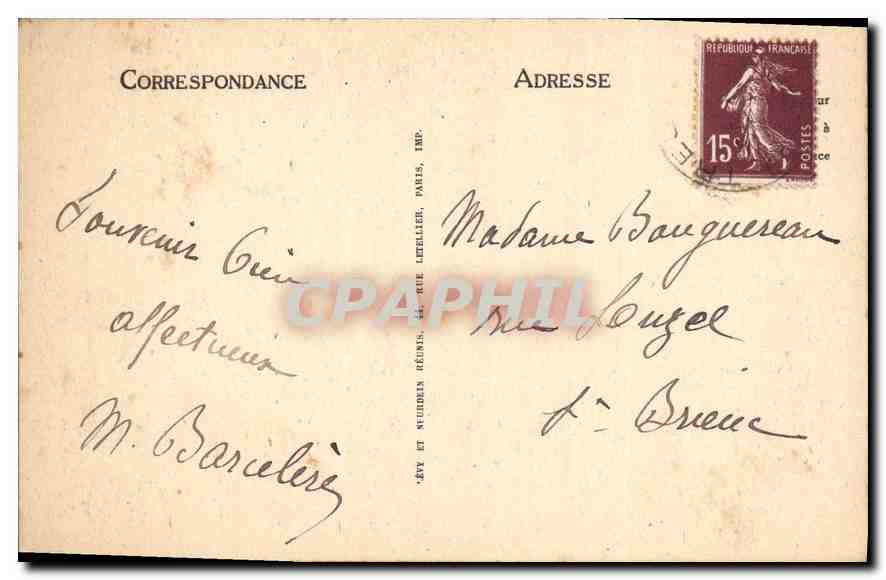 CORRESPONDANCE
ADRESSE
REPUBLIQUE FRANÇAISE
15c
POSTES
Souvenir bien
affectueux
M. Barcelère
Madame Bouguereau
rue
St Brieuc
LÉVY ET NEURDEIN RÉUNIS, 44, RUE LETELLIER, PARIS, IMP.
CPAPHIL